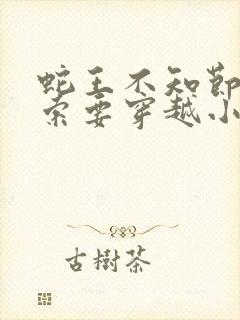 蛇王不知節
索要穿越小
古樹茶